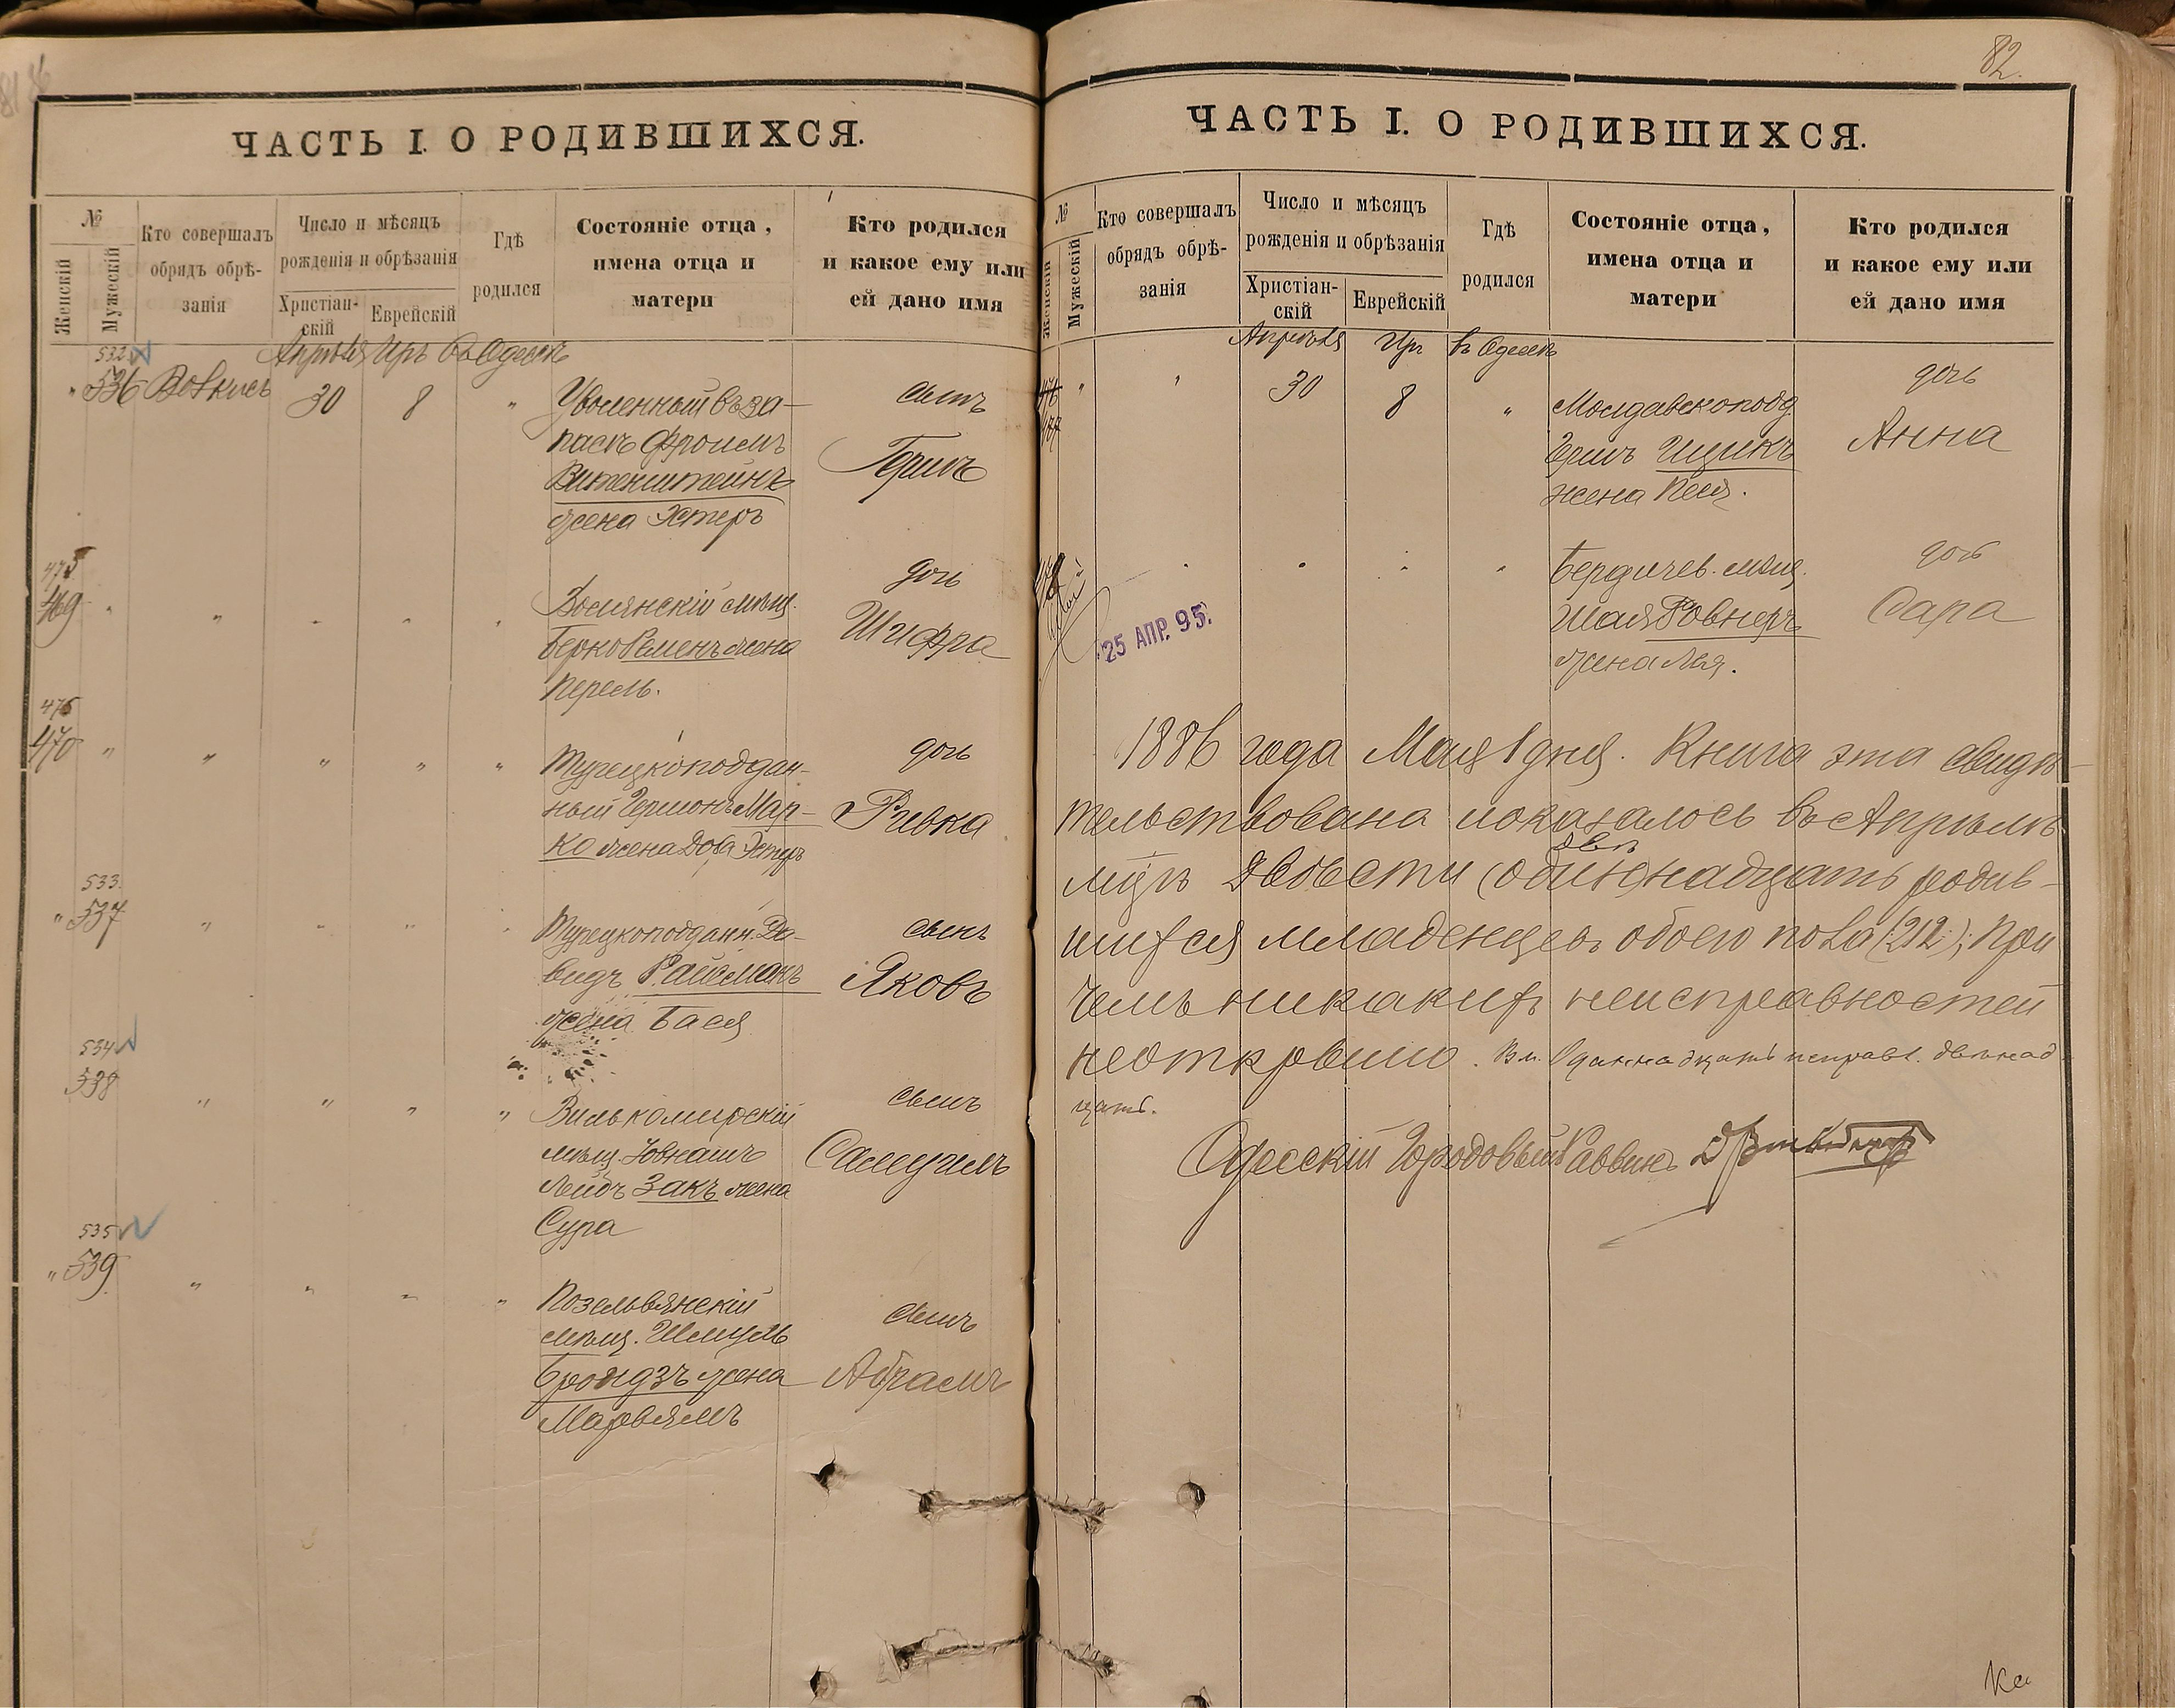 ЧАСТЬ I. О РОДИВШИХСЯ.
№
Женскій
Мужескій
Кто совершалъ
обрядъ обрѣ-
занія
Число и мѣсяцъ
рожденія и обрѣзанія
Христіан-
скій
Еврейскій
Гдѣ
родился
Состояніе отца,
имена отца и
матери
Кто родился
и какое ему или
ей дано имя
Апрѣля Иръ Въ Одессѣ
532
" 536 Вовкись 30 8 "
Уволенный въ за-
пасъ Фроимъ
Витенштейнъ
жена Эстеръ
сынъ
Гершъ
475
469 " " " " "
мѣщ.
Берко Ременъ жена
Перель.
дочь
Шифра
476
470 " " " " "
Турецкоподдан-
ный Гершонъ Мар-
ко жена Доба Эстеръ
дочь
Ривка
533
" 537 " " " "
Турецкоподданн. Да-
видъ Райсманъ
жена Бася
сынъ
Яковъ
534
538 " " " "
Вилькомирскій
мѣщ. Ювнашъ
Лейбъ Закъ жена
Сура
сынъ
Самуилъ
535
" 539 " " " "
Позельвянскій
мѣщ. Шмуль
Броядзъ жена
Марьямъ
сынъ
Абрамъ
82.
ЧАСТЬ I. О РОДИВШИХСЯ.
№
Женскій
Мужескій
Кто совершалъ
обрядъ обрѣ-
занія
Число и мѣсяцъ
рожденія и обрѣзанія
Христіан-
скій
Еврейскій
Гдѣ
родился
Состояніе отца,
имена отца и
матери
Кто родился
и какое ему или
ей дано имя
Апрѣля Иръ въ Одессѣ
477 " " 30 8 "
Молдавскоподд.
Гершъ Ицикъ
жена Песя.
дочь
Анна
Бердичев. мѣщ.
Шая Ровнеръ
жена Лея.
дочь
Сара
25 АПР. 95.
1886 года Мая 1 дня. Книга эта свидѣ-
тельствована и оказалось въ Апрѣлѣ
двѣ
мцѣ двѣсти (один)надцать родив-
шихся младенцевъ обоего пола (212); при
чемъ никакихъ неисправностей
неоткрыто. Вм. Одиннадцать исправл. двѣнад
цать.
Одесскій Городовый Раввинъ